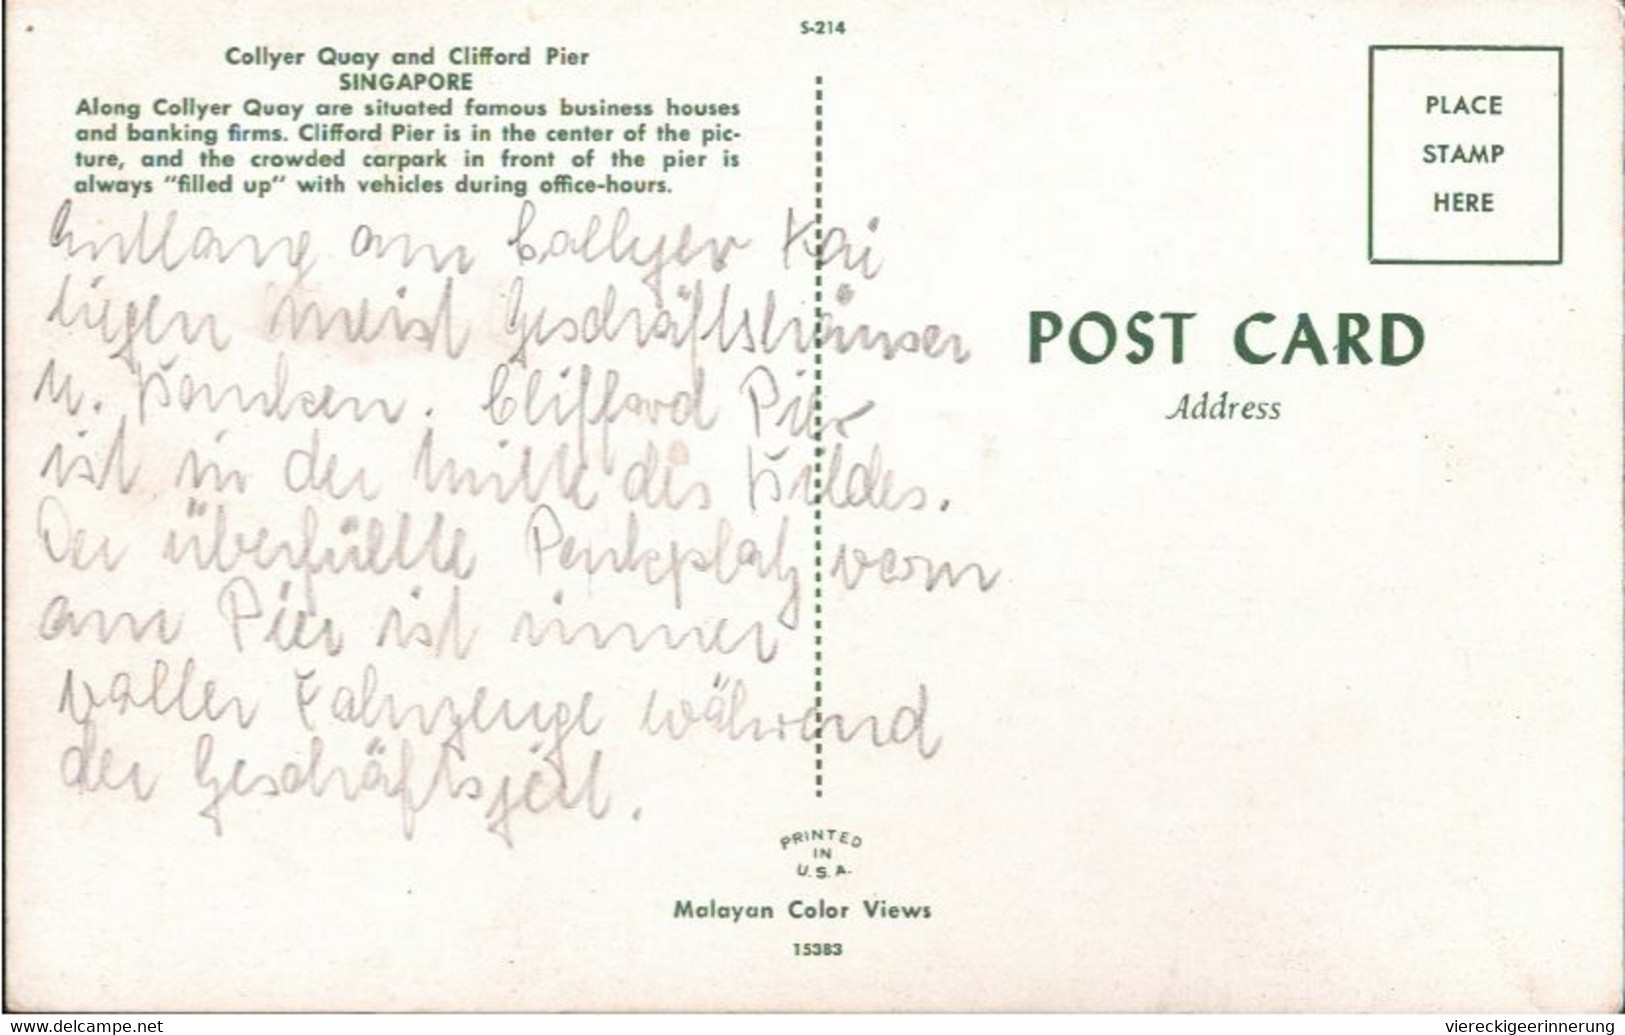 S-214
Collyer Quay and Clifford Pier
SINGAPORE
Along Collyer Quay are situated famous business houses
and banking firms. Clifford Pier is in the center of the pic-
ture, and the crowded carpark in front of the pier is
always "filled up" with vehicles during office-hours.
Entlang am Collyer Kai
liegen meist Geschäftshäuser
u. Banken. Clifford Pier
ist in der Mitte des Bildes.
Der überfüllte Parkplatz vorn
am Pier ist immer
voller Fahrzeuge während
der Geschäftszeit.
PLACE
STAMP
HERE
POST CARD
Address
PRINTED
IN
U.S.A.
Malayan Color Views
15383
www.delcampe.net
viereckigeerinnerung